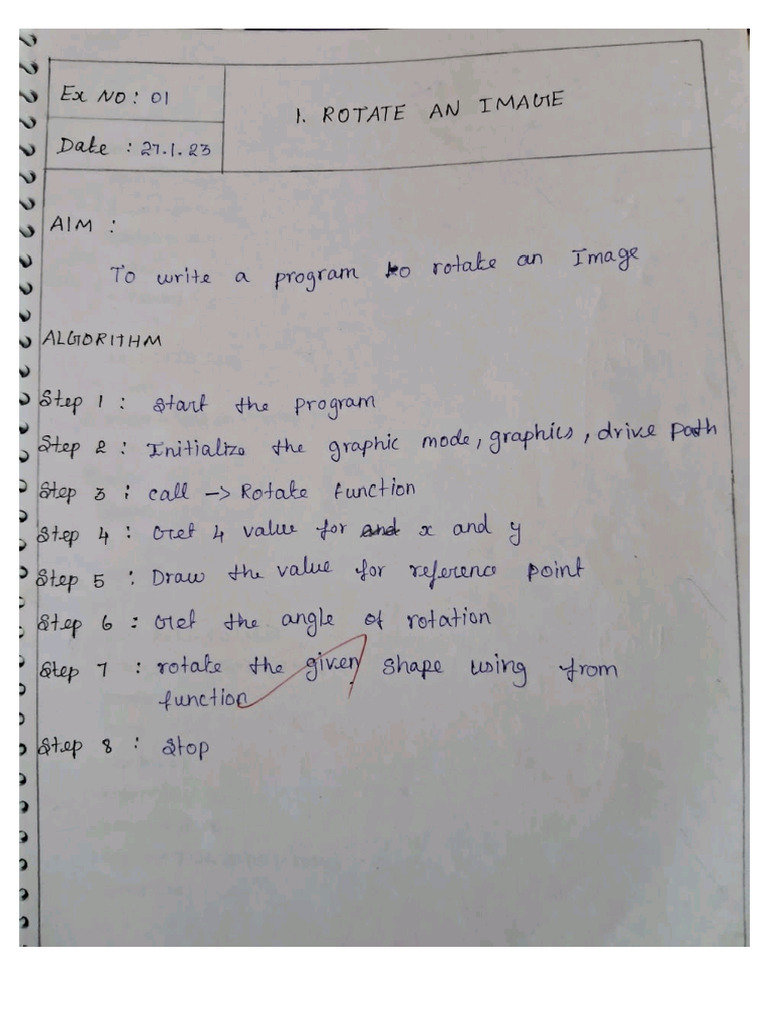 Ex NO: 01
1. ROTATE AN IMAGE
Date : 27.1.23
AIM :
To write a program to rotate an Image
ALGORITHM
Step 1 : Start the program
Step 2 : Initialize the graphic mode, graphics, drive path
Step 3 : call -> Rotate function
Step 4 : Get 4 value for and x and y
Step 5 : Draw the value for reference point
Step 6 : Get the angle of rotation
Step 7 : rotate the given shape using from
function
Step 8 : Stop